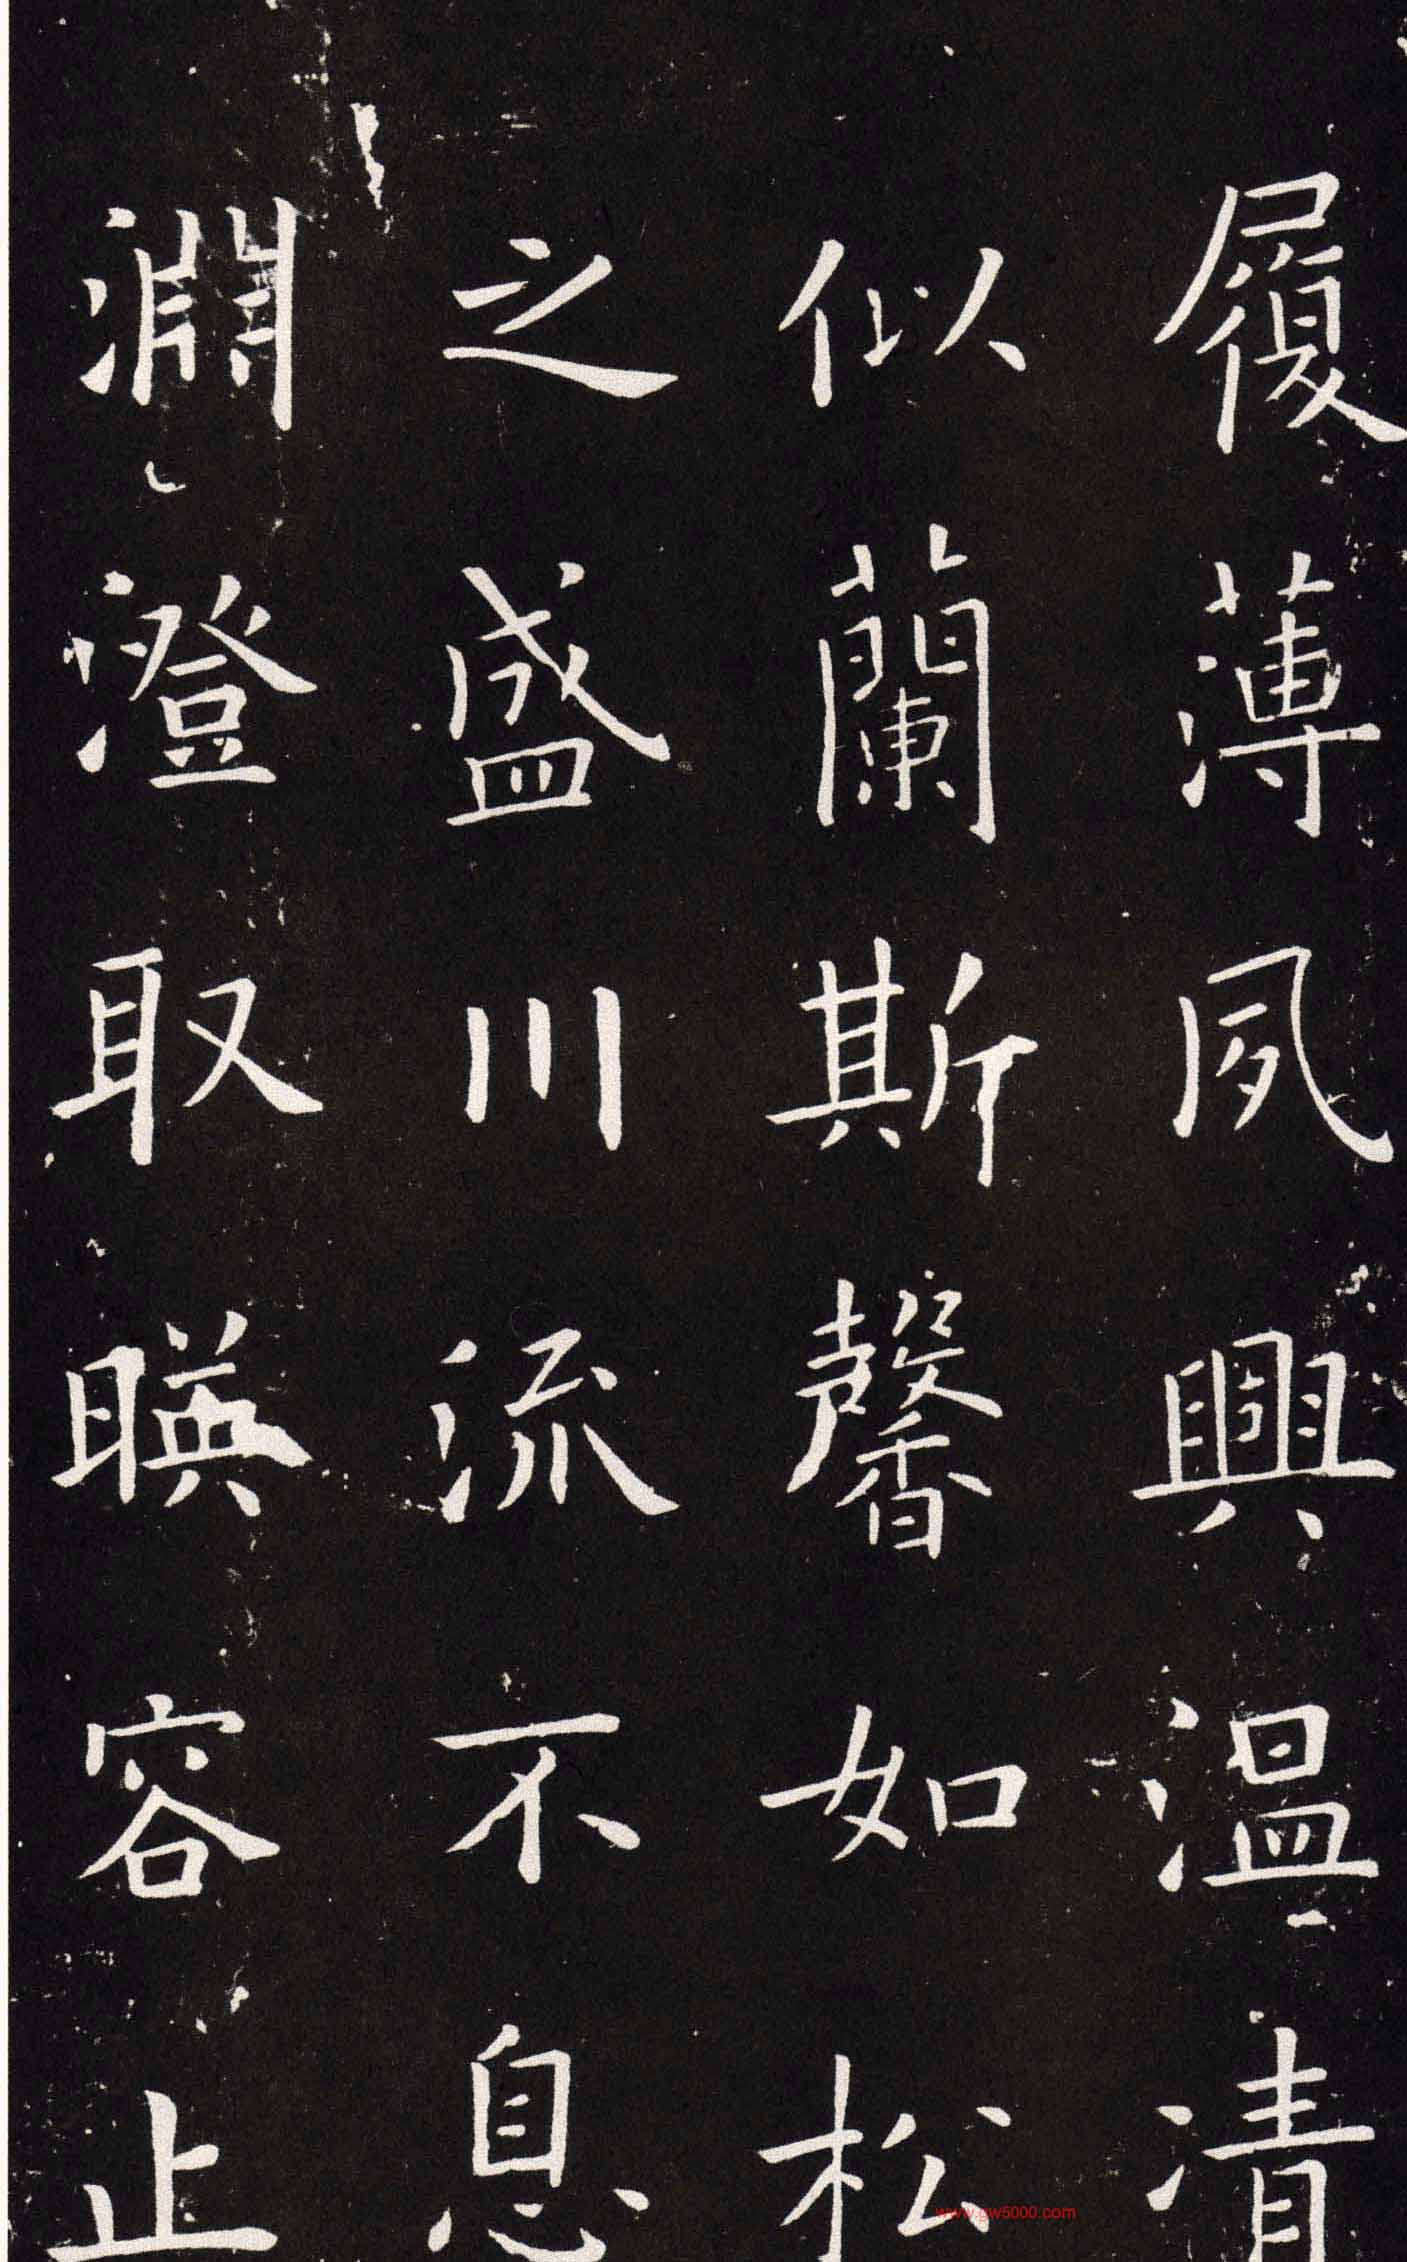 履薄夙興温清
似蘭斯馨如松
之盛川流不息
渊澄取暎容止
www.gw5000.com